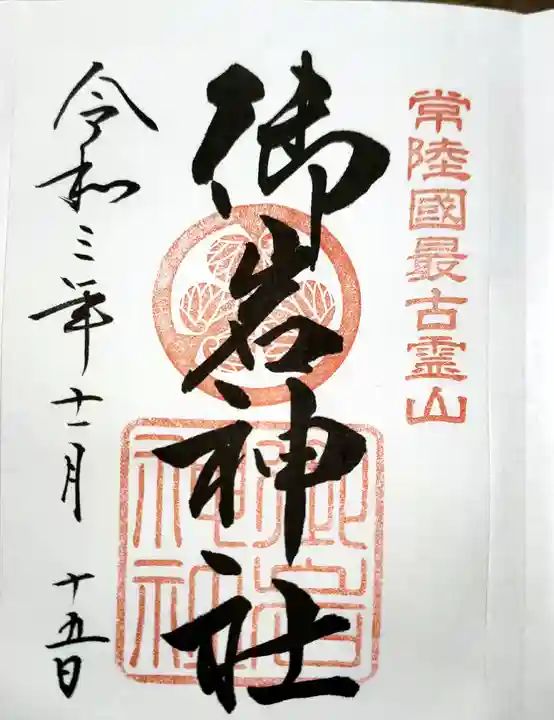 常陸國最古霊山
御岩神社
御岩
神社
令和三年十一月十五日